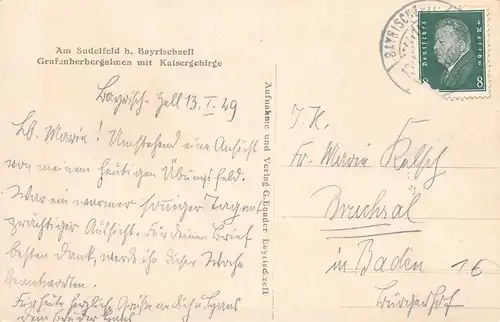 Am Sudelfeld b. Bayrischzell
Grafenherbergalmen mit Kaisergebirge
Bayrisch-Zell 13.I.29
Lb. Maria! Umstehend eine Ansicht
von meinem heutigen Übungsfeld.
War ein warmer sonniger Tag mit
prächtiger Aussicht. Für deinen Brief
besten Dank, werde ihn dieser Woche
beantworten.
Für heute herzlich Grüße
dein Bruder Hans
Aufnahme und Verlag G. Egnader Bayrischzell
BAYRISCH
Deutsches Reich
8 8
Fr. Maria
Bruchsal
in Baden 15